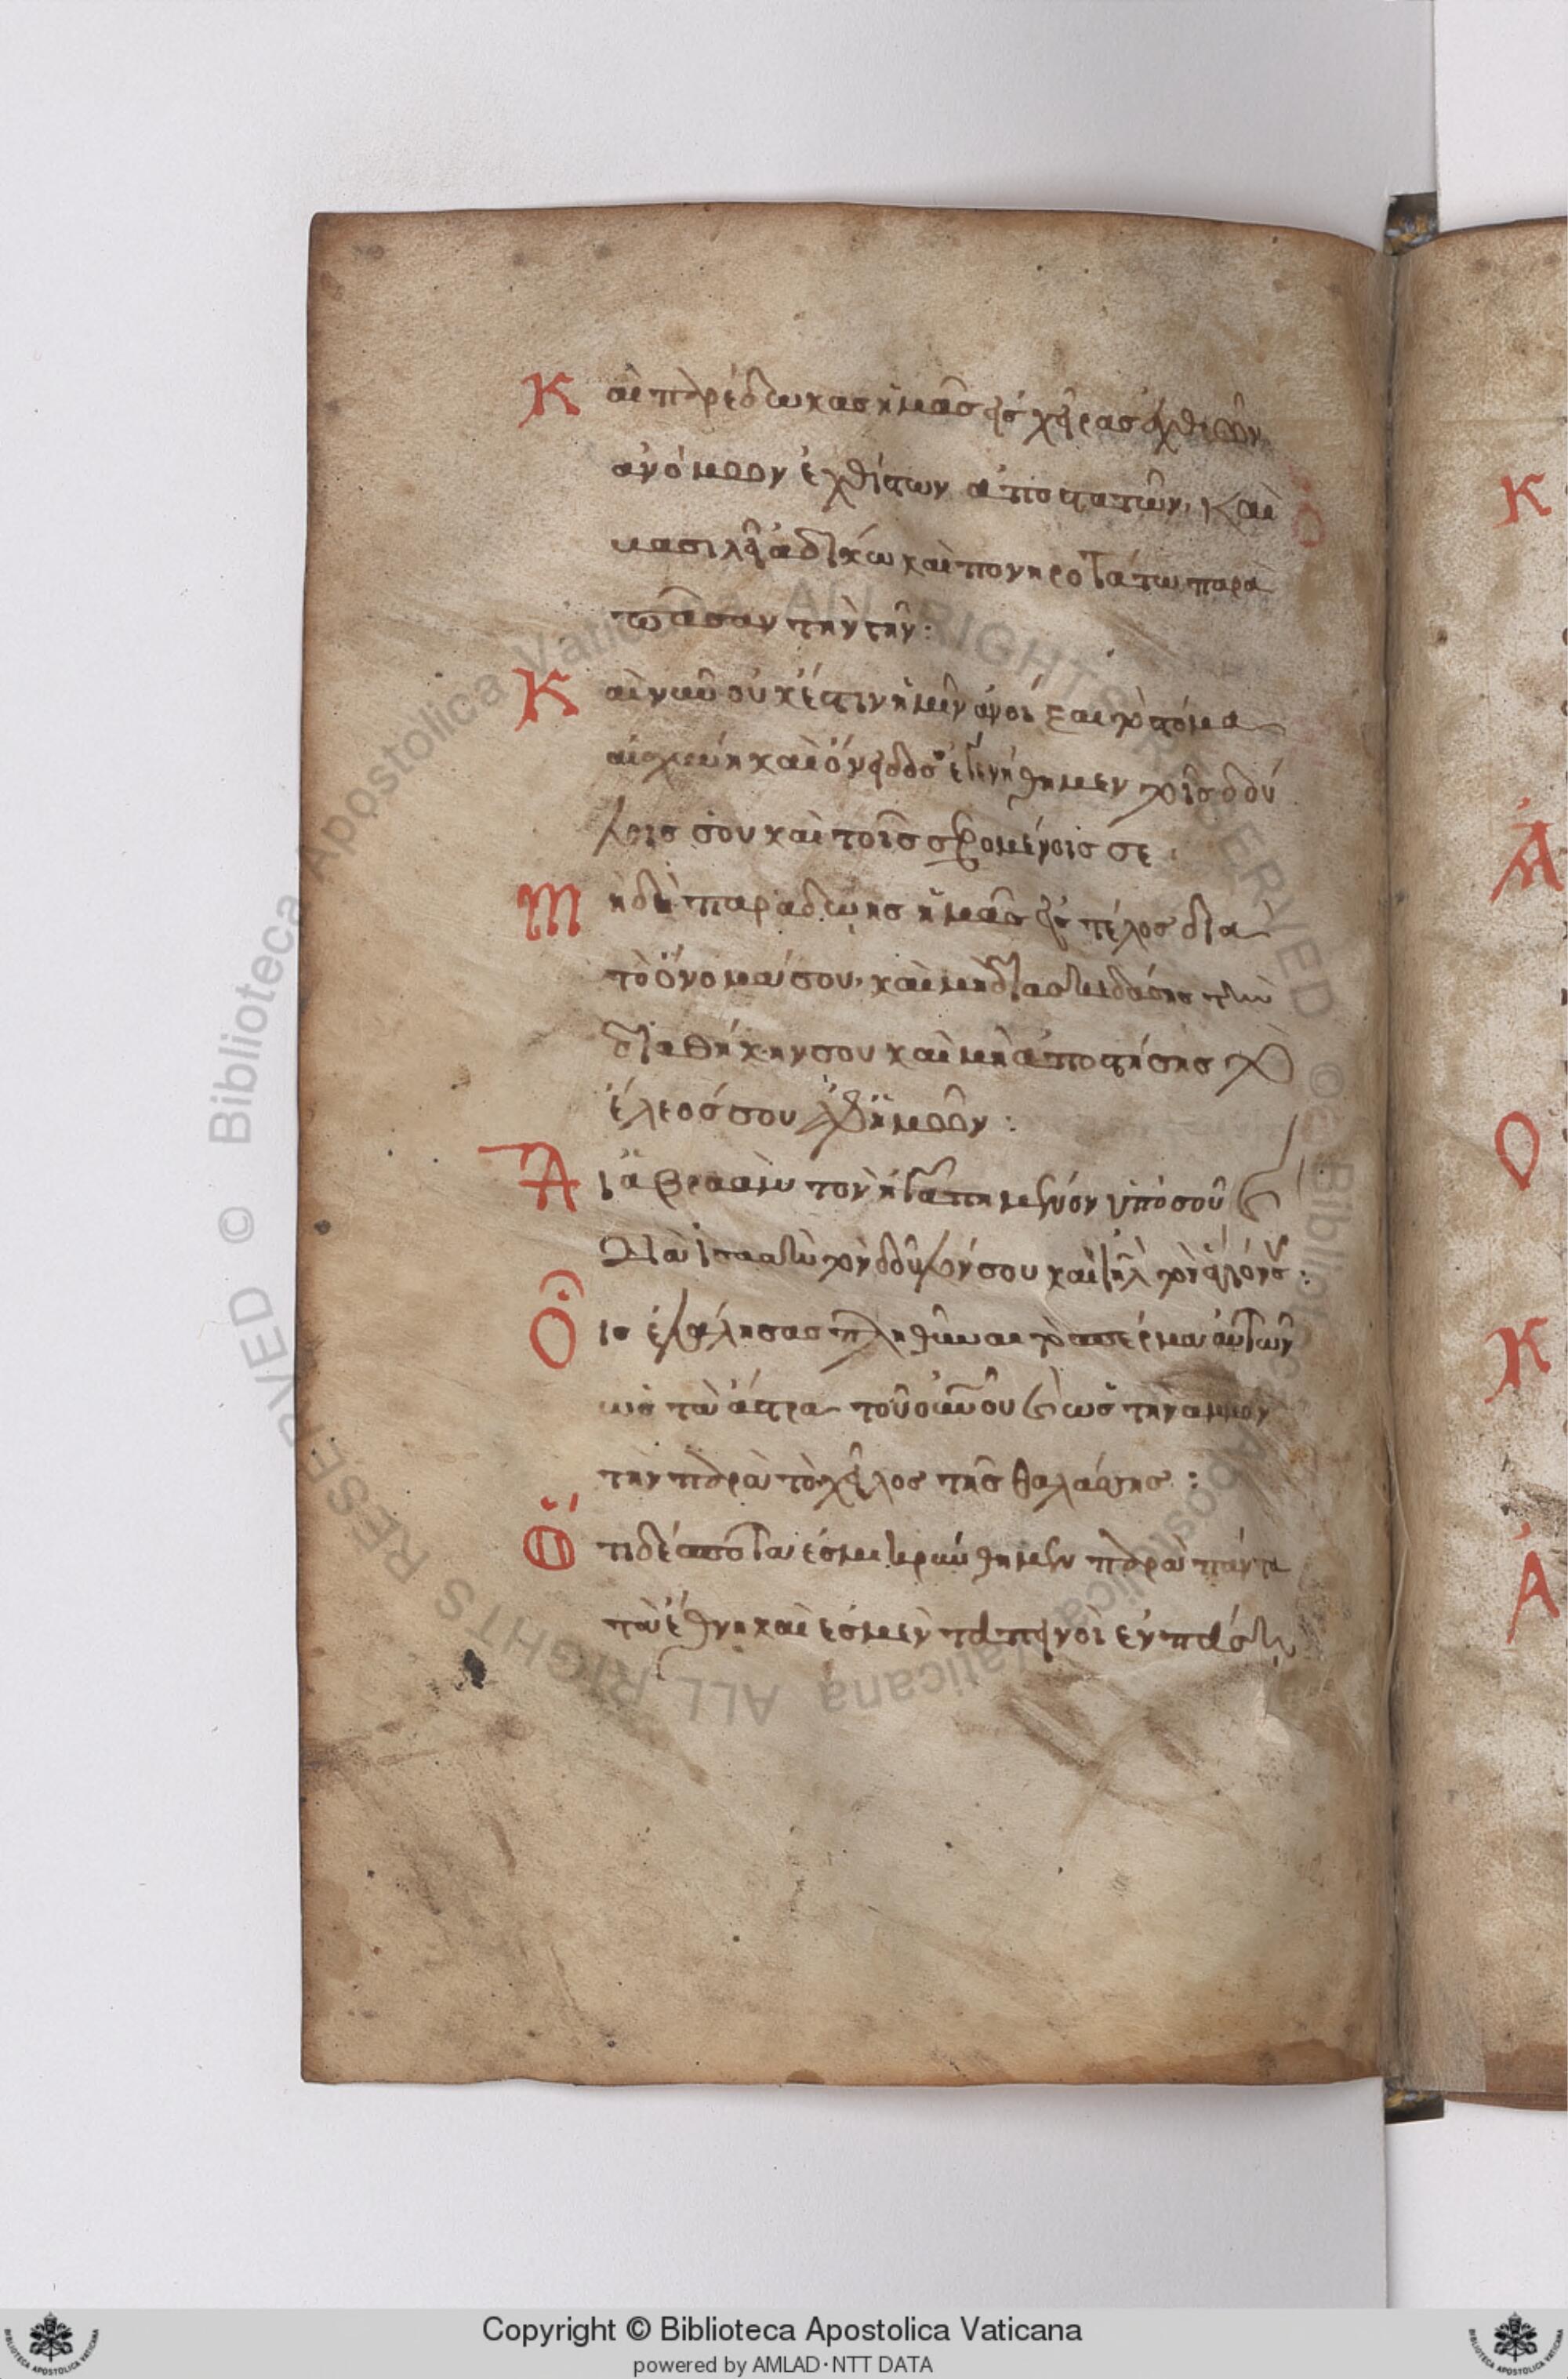 Καὶ παρέδωκας ἡμᾶς εἰς χεῖρας ἐχθρῶν
ἀνόμων ἐχθίστων ἀποστατῶν, καὶ
βασιλεῖ ἀδίκω καὶ πονηροτάτω παρὰ
πᾶσαν τὴν γῆν:
Καὶ νῦν οὐκ έστιν ἡμῖν ἀνοίξαι τὸ στόμα
αἰσχύνη καὶ όνειδος ἐγενήθημεν τοῖς δού
λοις σου καὶ τοῖς σεβομένοις σε
Μὴ δὴ παραδώης ἡμᾶς εἰς τέλος δια
τὸ όνομά σου, καὶ μὴ διασκεδάσης τὴν
διαθήκην σου καὶ μὴ ἀποστήσης τὸ
έλεός σου ἀφ ἡμῶν:
Διὰ ἁβραὰμ τὸν ἠγαπημένον ὑπὸ σοῦ καὶ
διὰ ἰσαὰκ τὸν δοῦλόν σου καὶ ιηλ τὸν άγιόν σ:
Οἷς ἐλάλησας πληθῦναι τὸ σπέρμα αὐτῶν
ὡς τὰ άστρα τοῦ οὐνοῦ καὶ ὡς τὴν άμμον
τὴν παρὰ τὸ χεῖλος τῆς θαλάσσης:
Ὅτι δέσποτα ἐσμικρύνθημεν παρὰ πάντα
τὰ έθνη καὶ ἐσμὲν ταπεινοὶ ἐν πάση
Copyright © Biblioteca Apostolica Vaticana
powered by AMLAD·NTT DATA